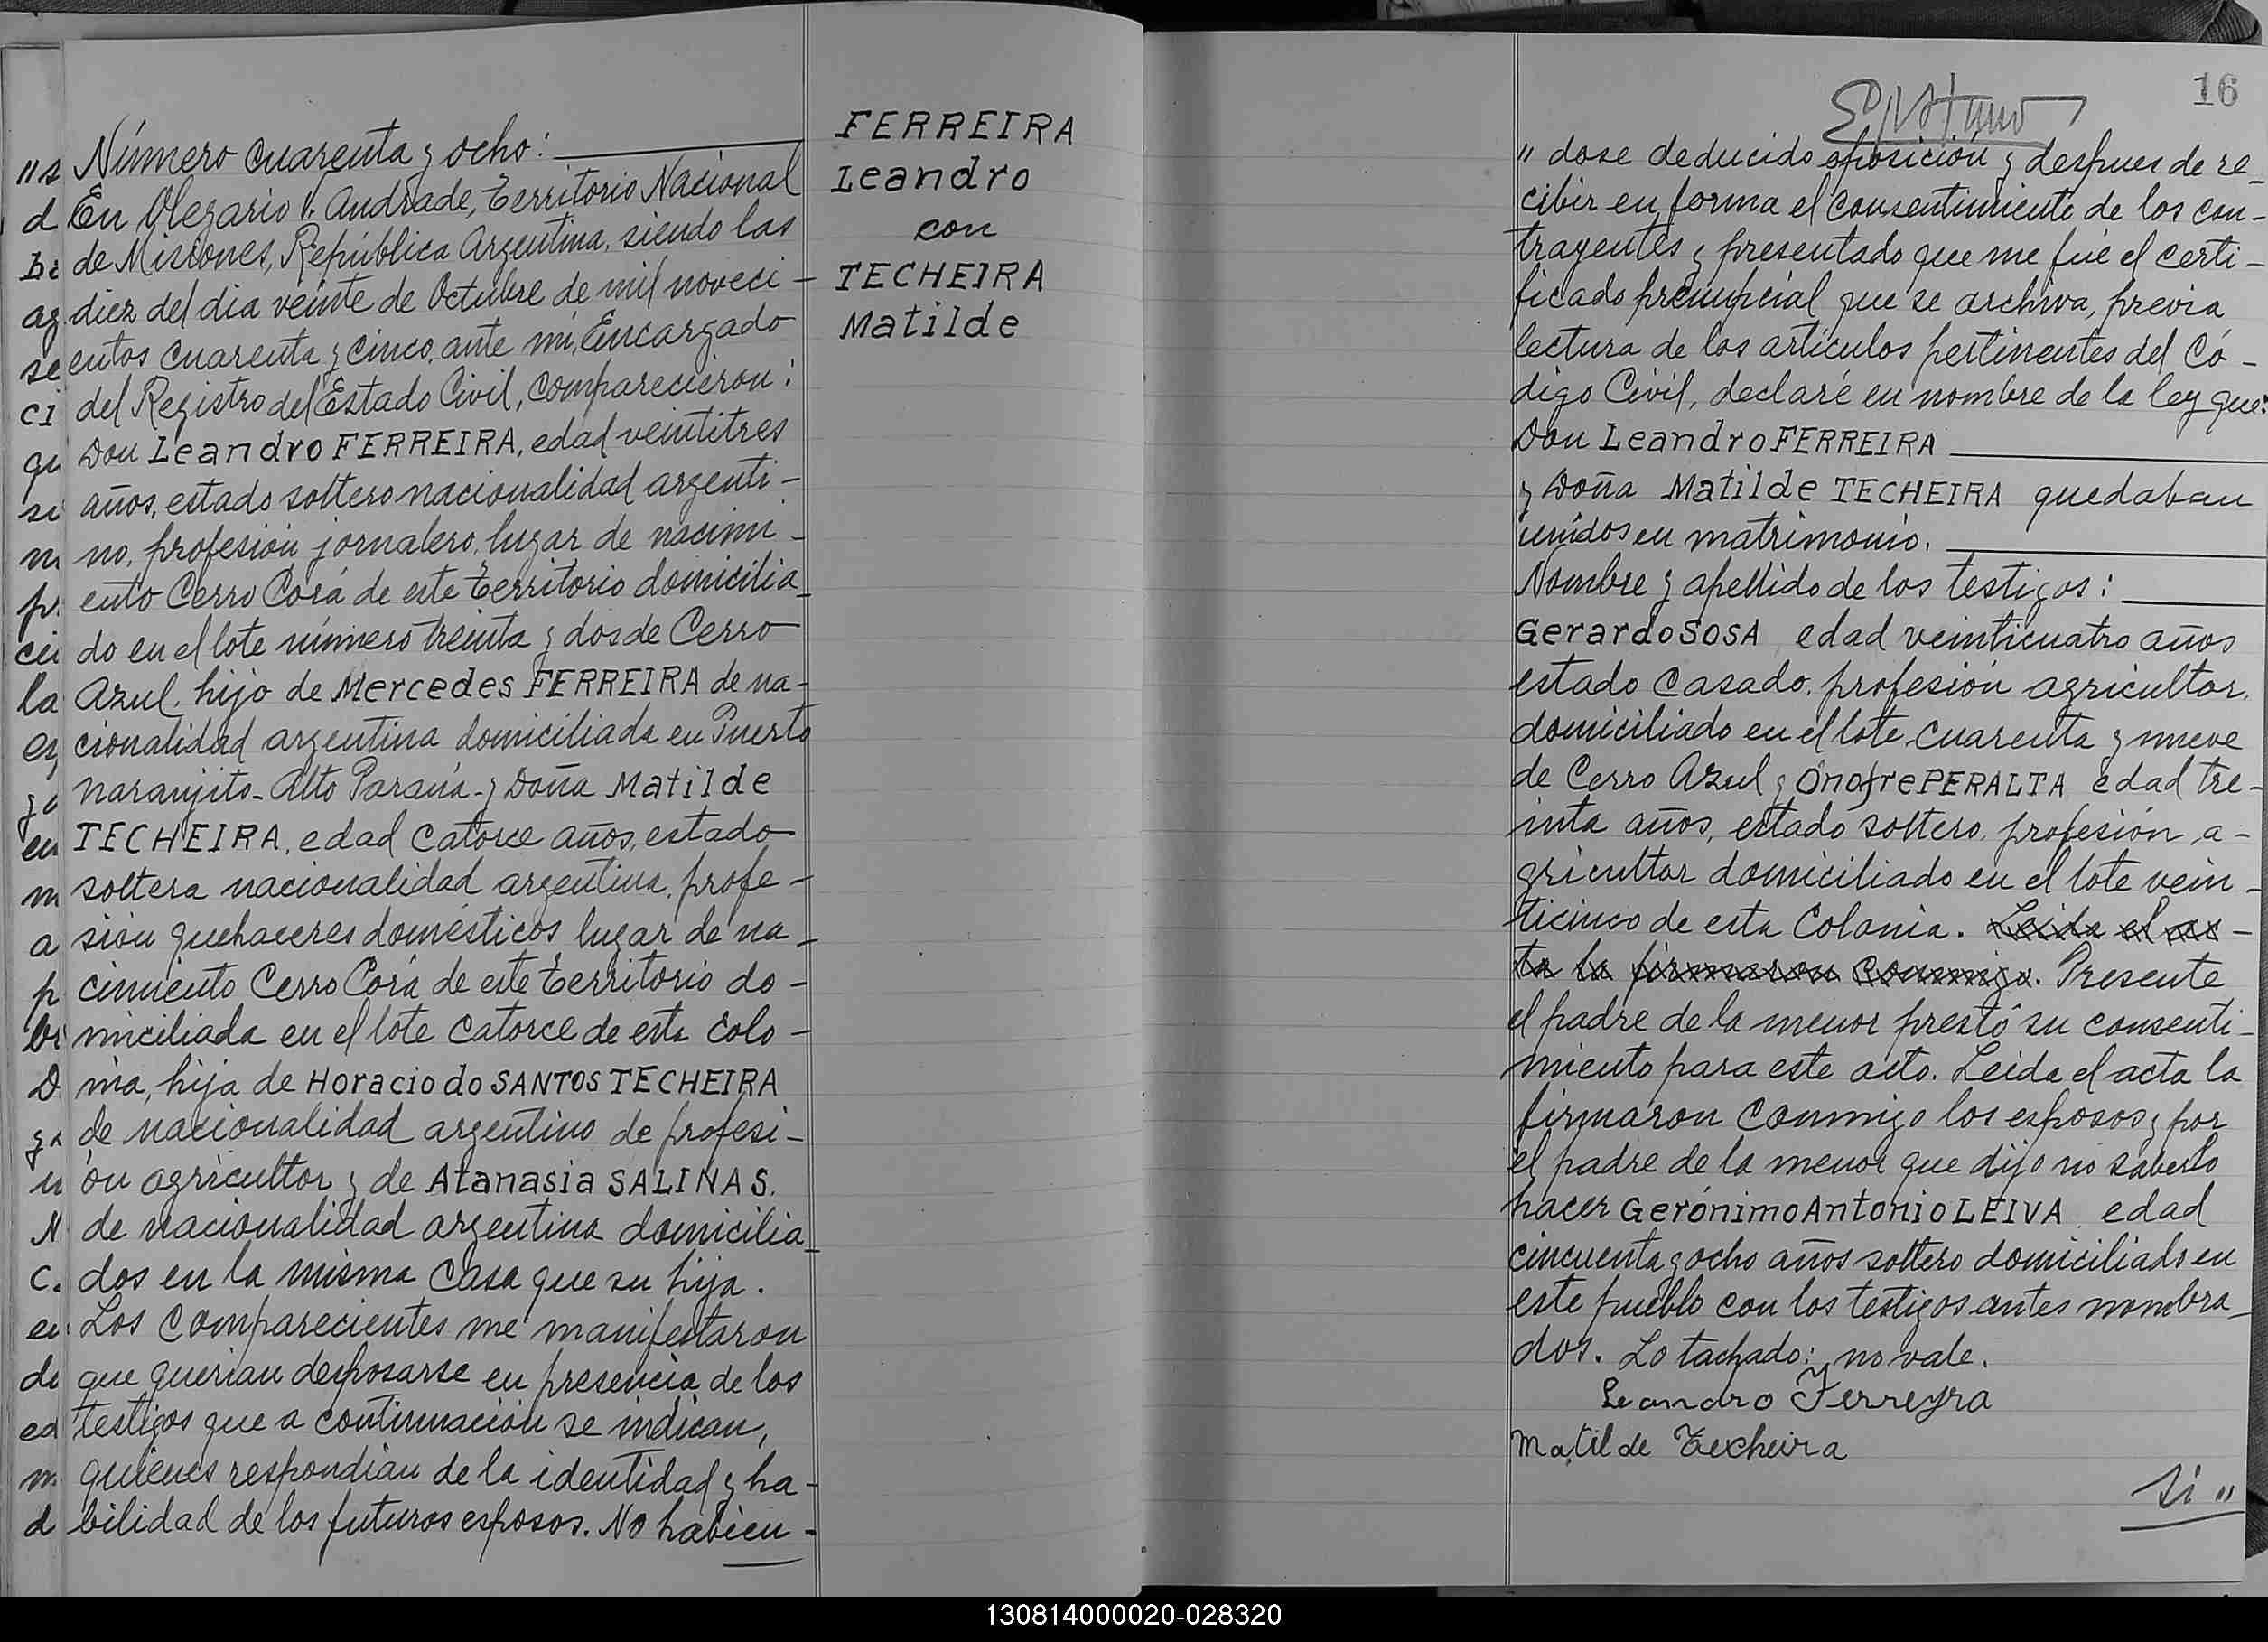 Número cuarenta y ocho:
En Olegario V. Andrade, territorio Nacional
de Misiones, República Argentina, siendo las
diez del dia veinte de Octubre de mil noveci-
entos cuarenta y cinco, ante mi, Encargado
del Registro del Estado Civil, comparecieron:
Don Leandro FERREIRA, edad veintitres
años, estado soltero nacionalidad argenti-
no, profesión jornalero, lugar de nacimi-
ento Cerro Corá de este territorio domicilia-
do en el lote número treinta y dos de Cerro
Azul, hijo de Mercedes FERREIRA de na-
cionalidad argentina domiciliada en Puerto
naranjito - Alto Paraná - y Doña Matilde
TECHEIRA, edad catorce años, estado
soltera nacionalidad argentina, profe-
sión quehaceres domésticos lugar de na-
cimiento Cerro Corá de este territorio do-
miciliada en el lote catorce de esta colo-
nia, hija de Horacio do SANTOS TECHEIRA
de nacionalidad argentino de profesi-
ón agricultor y de Atanasia SALINAS.
de nacionalidad argentina domicilia-
dos en la misma casa que su hija.
Los comparecientes me manifestaron
que querian desposarse en presencia de los
testigos que a continuación se indican,
quienes respondian de la identidad y ha-
bilidad de los futuros esposos. No habien-
FERREIRA
Leandro
con
TECHEIRA
Matilde
16
" dose deducido oposición y despues de re-
cibir en forma el consentimiento de los con-
trayentes y presentado que me fué el certi-
ficado prenupcial que se archiva, previa
lectura de los artículos pertinentes del Có-
digo Civil, declaré en nombre de la ley que:
Don Leandro FERREIRA
y Doña Matilde TECHEIRA quedaban
unidos en matrimonio.
Nombre y apellido de los testigos:
Gerardo SOSA edad veinticuatro años
estado casado, profesión agricultor,
domiciliado en el lote cuarenta y nueve
de Cerro Azul y Onofre PERALTA edad tre-
inta años, estado soltero, profesión a-
gricultor domiciliado en el lote vein-
ticinco de esta Colonia. Leida el ac-
ta la firmaron conmigo. Presente
el padre de la menor prestó su consenti-
miento para este acto. Leida el acta la
firmaron conmigo los esposos y por
el padre de la menor que dijo no saberlo
hacer Gerónimo Antonio LEIVA edad
cincuenta y ocho años soltero domiciliado en
este pueblo con los testigos antes nombra-
dos. Lo tachado: no vale.
Leandro Ferreyra
Matilde Techeira
si "
130814000020-028320